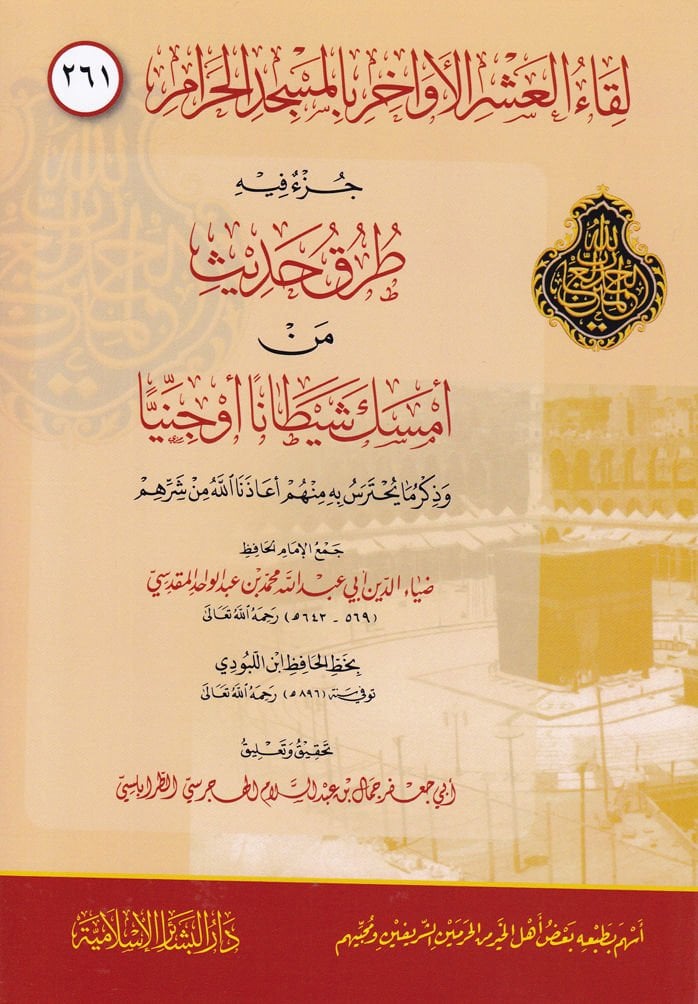 لِقَاءُ العَشْرِ الأَوَاخِرِ بِالمَسْجِدِ الحَرَامِ
٢٦١
جُزْءٌ فِيهِ
طُرُقُ حَدِيثِ
مَنْ
أَمْسَكَ شَيْطَانًا أَوْ جِنِّيًّا
وَذِكْرُ مَا يُحْتَرَسُ بِهِ مِنْهُمْ أَعَاذَنَا اللَّهُ مِنْ شَرِّهِمْ
جَمْعُ الإِمَامِ الحَافِظِ
ضِيَاءِ الدِّينِ أَبِي عَبْدِ اللَّهِ مُحَمَّدِ بْنِ عَبْدِ الوَاحِدِ المَقْدِسِيِّ
(٥٦٩ - ٦٤٣ هـ) رَحِمَهُ اللَّهُ تَعَالَى
بِخَطِّ الحَافِظِ ابْنِ اللَّبُودِي
توفي سنة (٨٩٦ هـ) رَحِمَهُ اللَّهُ تَعَالَى
تَحْقِيقُ وَتَعْلِيقُ
أَبِي جَعْفَرٍ جَمَالِ بْنِ عَبْدِ السَّلَامِ الهَجَرْسِيِّ الطَّرَابُلْسِيِّ
أَسْهَمَ بِطَبْعِهِ بَعْضُ أَهْلِ الخَيْرِ مِنَ الحَرَمَيْنِ الشَّرِيفَيْنِ وَمُحِبِّيهِمْ
دَارُ البَشَائِرِ الإِسْلَامِيَّةِ